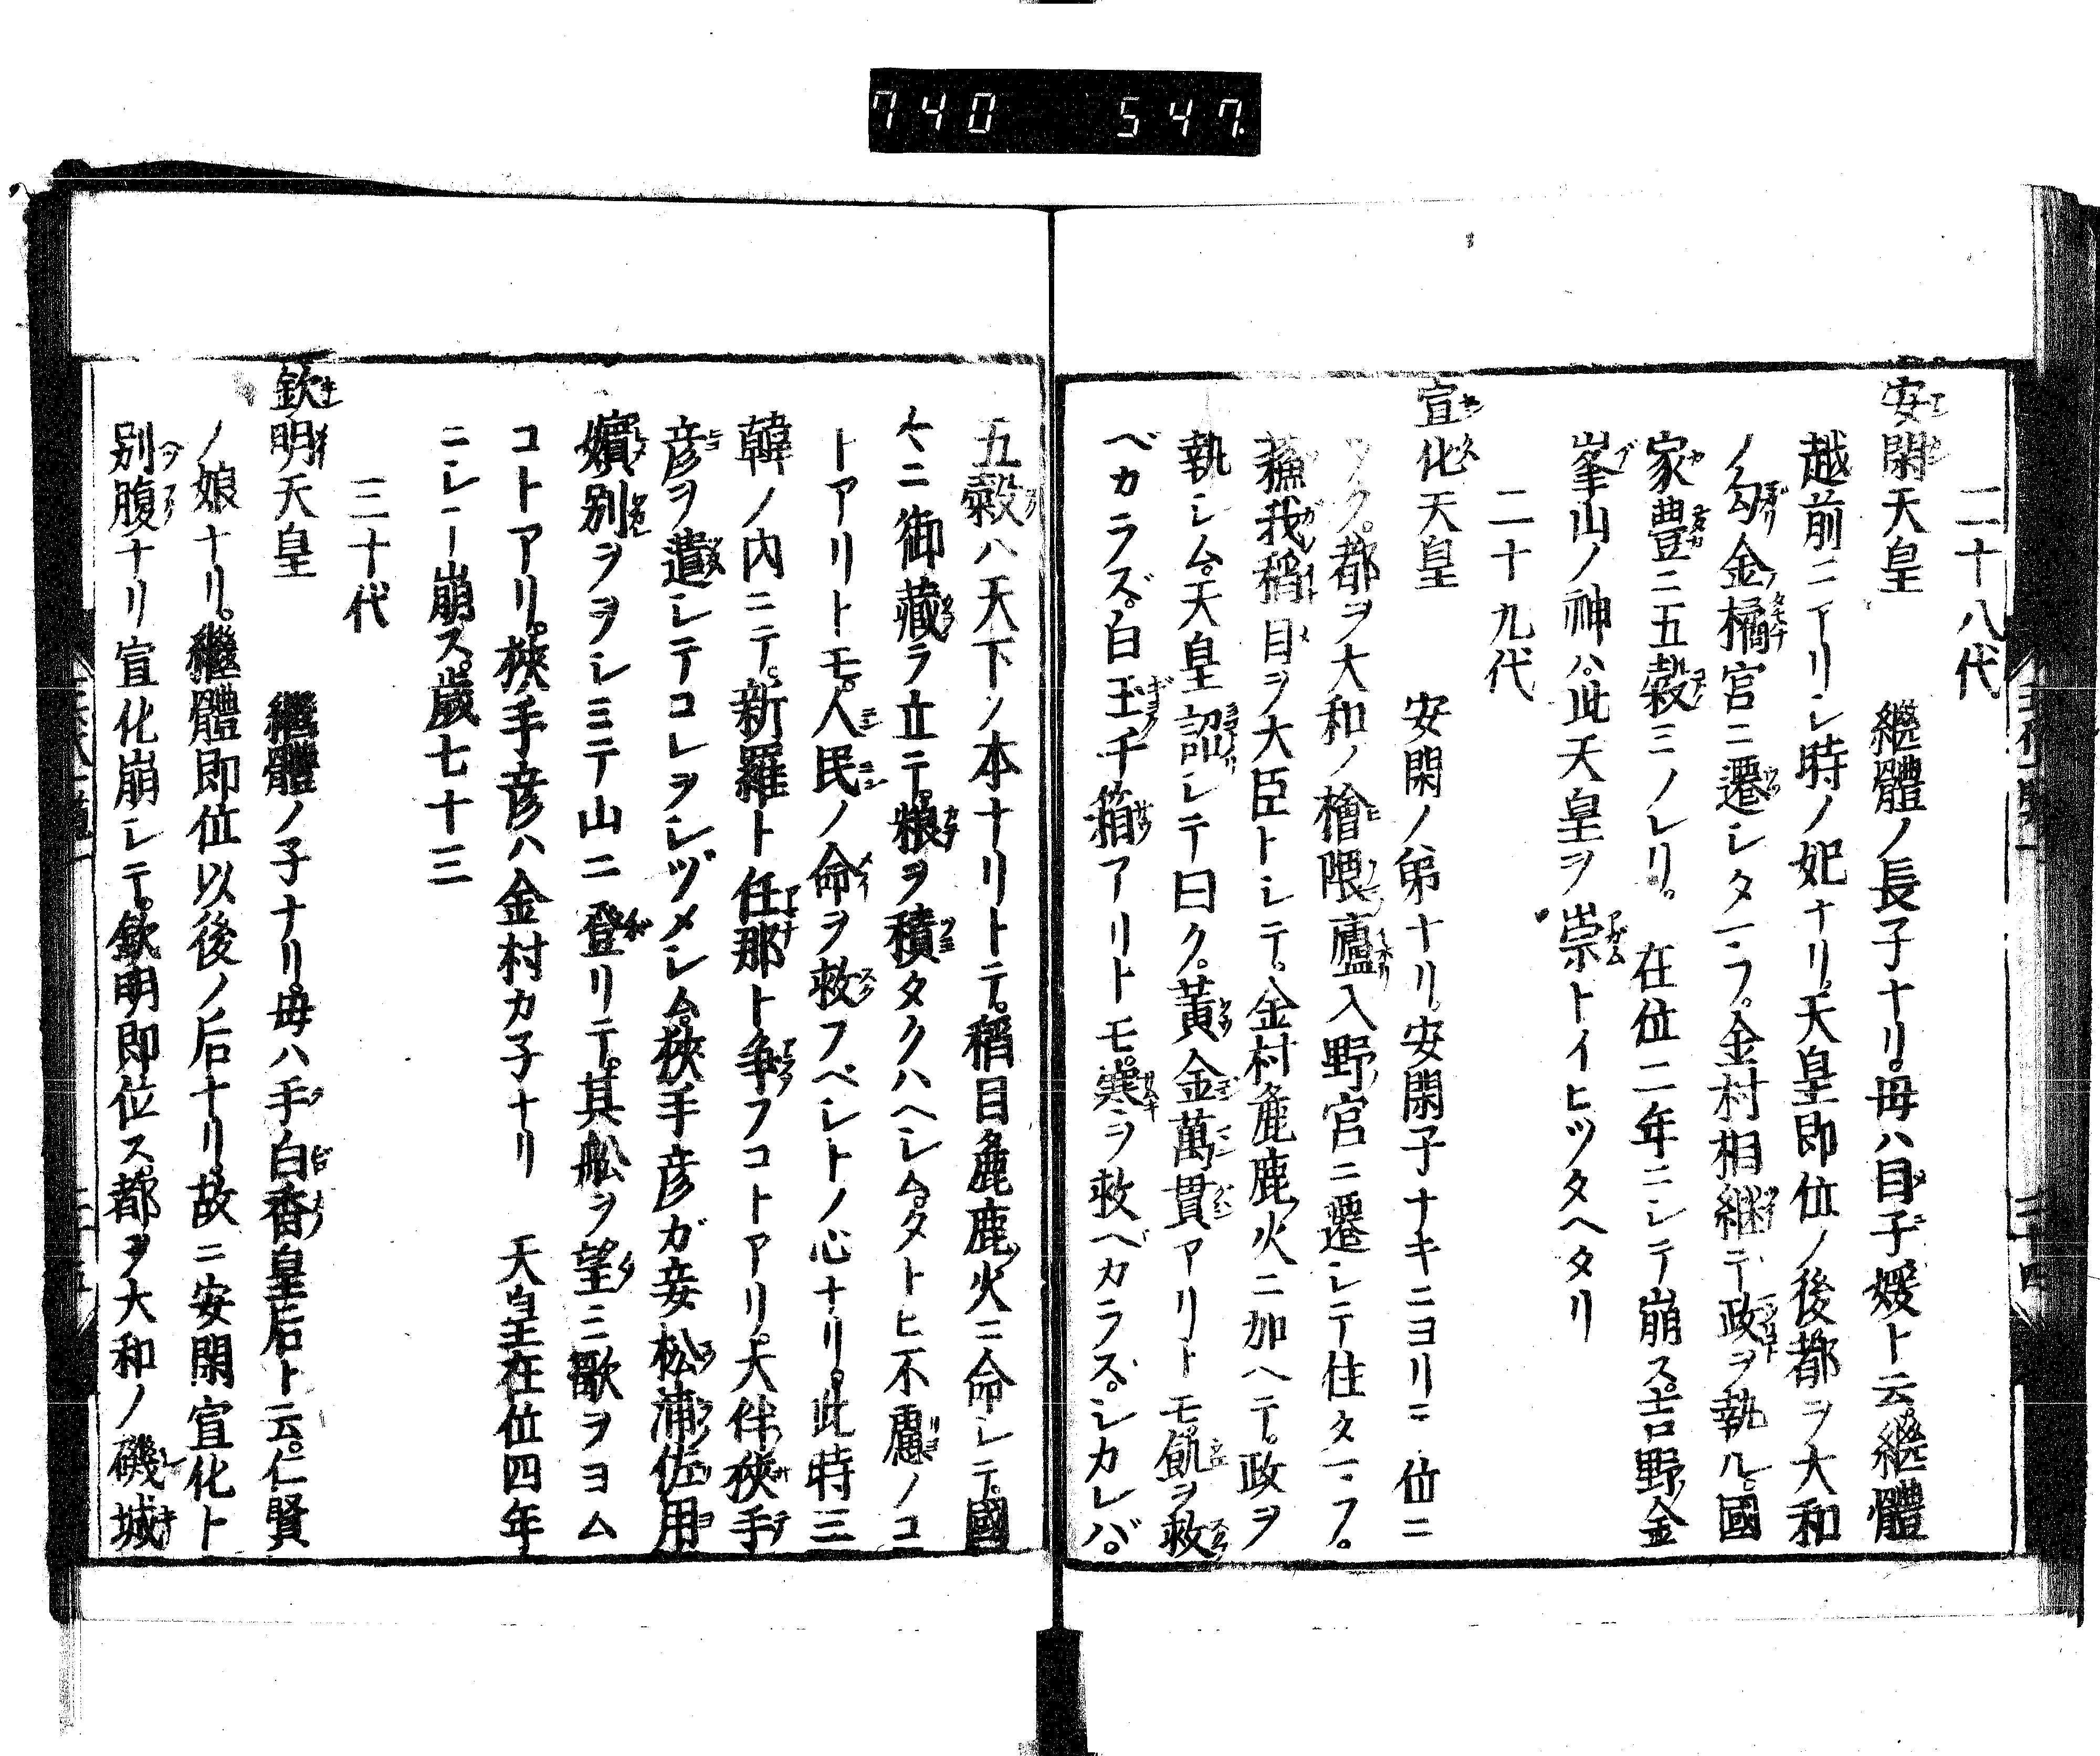 740 547
二十八代
安閑天皇 繼體ノ長子ナリ。母ハ目子媛ト云。繼體
越前ニアリシ時ノ妃ナリ。天皇即位ノ後都ヲ大和
ノ勾金橘宮ニ遷シタマフ。金村相継テ政ヲ執ル。國
家豊ニ五穀ミノレリ。 在位二年ニシテ崩ス。吉野金
峯山ノ神ハ。此天皇ヲ崇トイヒツタヘタリ
二十九代
宣化天皇 安閑ノ弟ナリ。安閑子ナキニヨリテ位ニ
ツク。都ヲ大和ノ檜隈廬入野宮ニ遷シテ住タマフ。
蘇我稲目ヲ大臣トシテ。金村麁鹿火ニ加ヘテ。政ヲ
執シム。天皇詔シテ曰ク。黃金萬貫アリトモ。飢ヲ救
ベカラズ。白玉千箱アリトモ。寒ヲ救ベカラズ。シカレバ。
五穀ハ天下ノ本ナリトテ。稲目麁鹿火ニ命シテ。國
々ニ御藏ヲ立テ。粮ヲ積タクハヘシム。タトヒ不慮ノコ
トアリトモ。人民ノ命ヲ救フベシトノ心ナリ。此時三
韓ノ内ニテ。新羅ト任那ト争フコトアリ。大伴狹手
彦ヲ遣シテコレヲシヅメシム。狹手彦ガ妾松浦佐用
嬪別ヲヲシミテ山ニ登リテ。其舩ヲ望ミ歌ヲヨム
コトアリ。狹手彦ハ金村カ子ナリ 天皇在位四年
ニシテ崩ス。歲七十三
三十代
欽明天皇 繼體ノ子ナリ。母ハ手白香皇后ト云。仁賢
ノ娘ナリ。繼體即位以後ノ后ナリ。故ニ安閑宣化ト
別腹ナリ宣化崩シテ。欽明即位ス。都ヲ大和ノ磯城